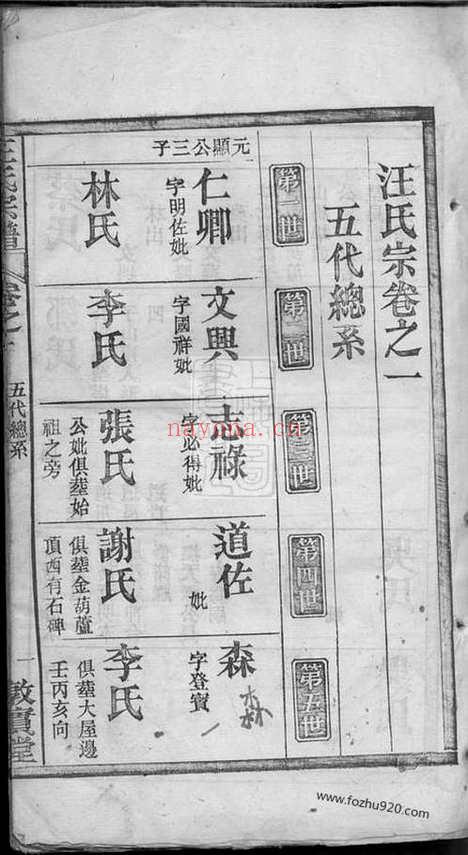 汪氏宗卷之一
五代總系
第一世
第二世
第三世
第四世
第五世
元顯公三子
仁卿
字明佐妣
林氏
文興
字國祥妣
李氏
志祿
字必得妣
張氏
公妣俱塟始
祖之旁
道佐
妣
謝氏
俱塟金葫蘆
頂西有石碑
森
森
字登寶
李氏
俱塟大屋邊
壬丙亥向
汪氏宗譜
卷之一
五代總系
一
敦實堂
nayona.cn
www.fozhu920.com